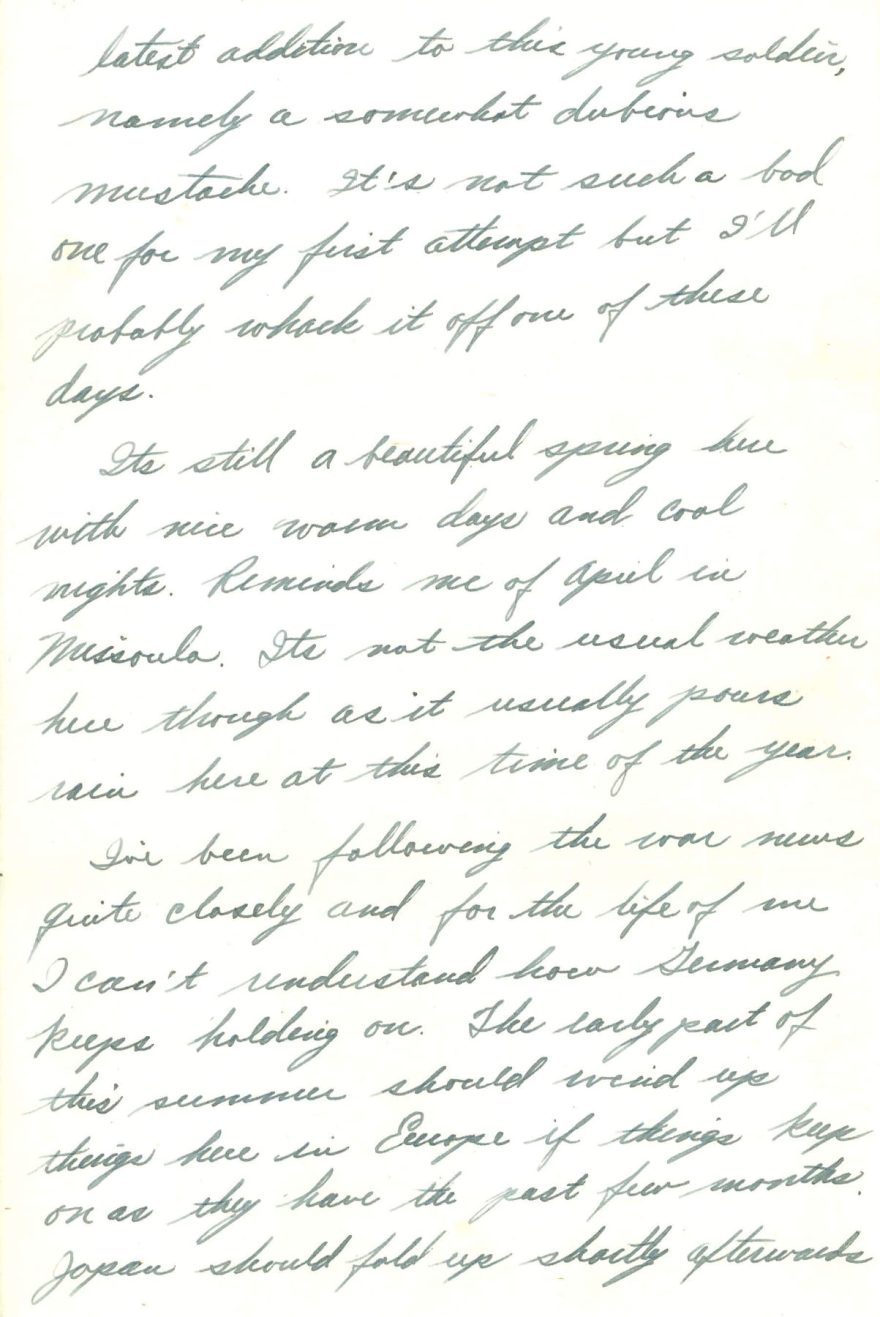 latest addition to this young soldier,
namely a somewhat dubious
mustache. It's not such a bad
one for my first attempt but I'll
probably whack it off one of these
days.
Its still a beautiful spring here
with nice warm days and cool
nights. Reminds me of April in
Missoula. Its not the usual weather
here though as it usually pours
rain here at this time of the year.
I've been following the war news
quite closely and for the life of me
I can't understand how Germany
keeps holding on. The early part of
this summer should wind up
things here in Europe if things keep
on as they have the past few months.
Japan should fold up shortly afterwards